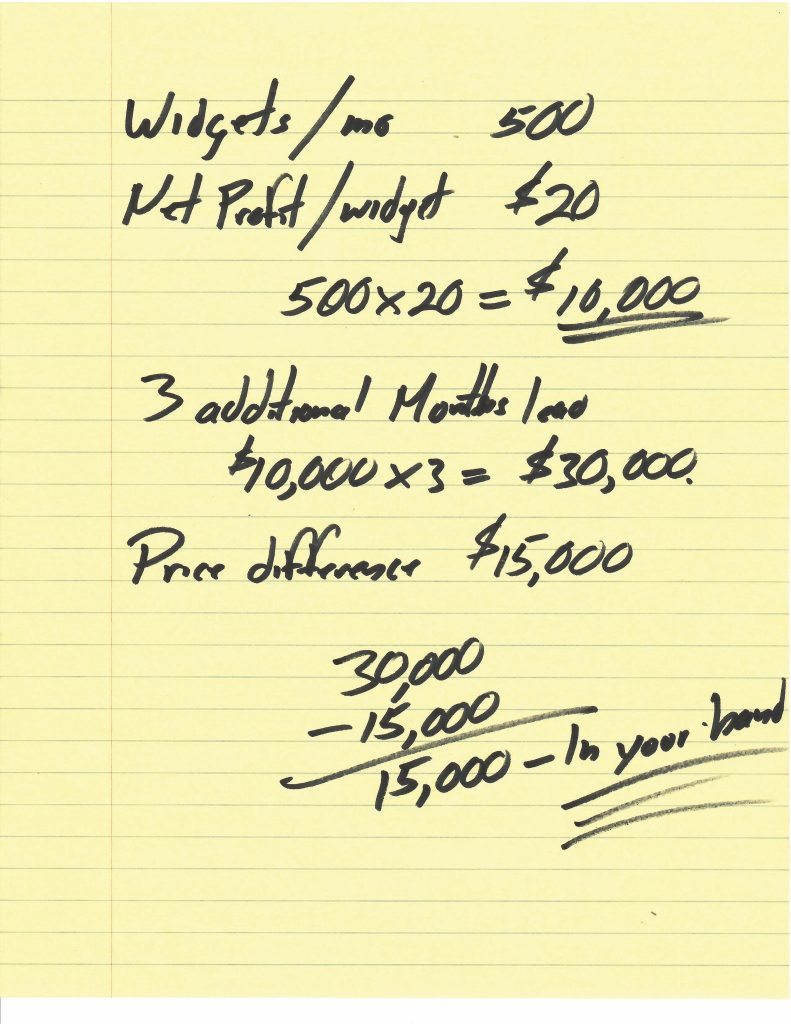 Widgets/mo 500
Net Profit/widget $20
500 x 20 = $10,000
3 additional Months lead
$10,000 x 3 = $30,000.
Price difference $15,000
30,000
- 15,000
15,000 - In your hand